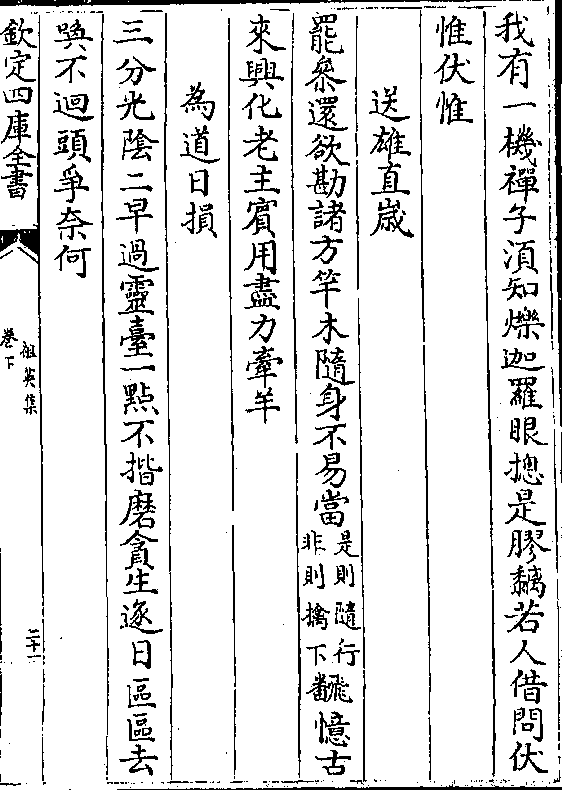 我有一機禪子須知爍迦羅眼摠是膠黐若人借問伏
惟伏惟
送雄直歳
罷叅還欲勘諸方竿木隨身不易當是則隨行飛
非則擒下番憶古
來興化老主賓用盡力牽羊
為道日損
三分光陰二早過靈臺一點不揩磨貪生逐日區區去
喚不迴頭爭奈何
欽定四庫全書
祖英集
卷下
二十一